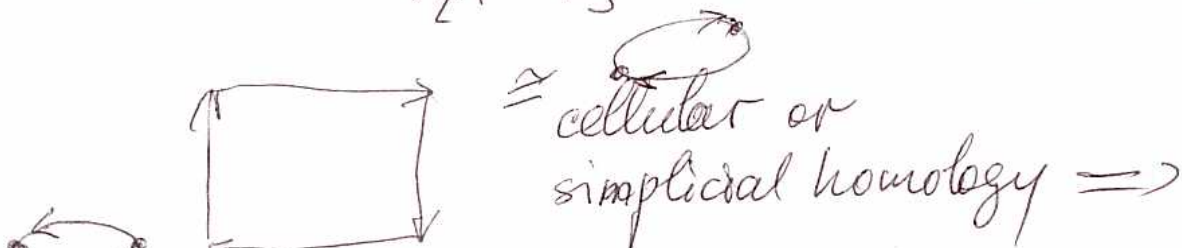 ≅
cellular or
simplicial homology =>